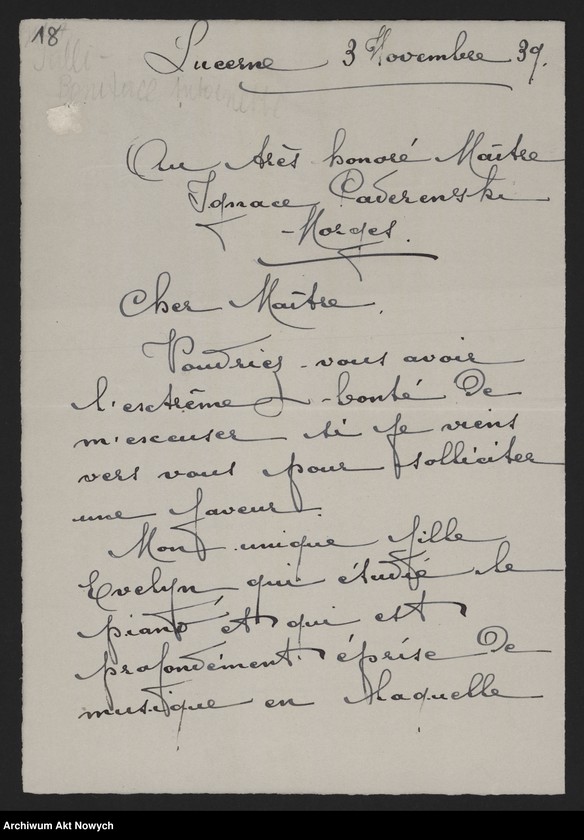 18
Lucerne 3 Novembre 39.
Au très honoré Maître
Ignace Paderewski
-Morges.
Cher Maître,
Voudriez-vous avoir
l'extrême -bonté de
m'excuser si je viens
vers vous pour solliciter
une faveur.
Mon unique fille
Evelyn, qui étudie le
piano et qui est
profondément éprise de
musique en laquelle
Archiwum Akt Nowych